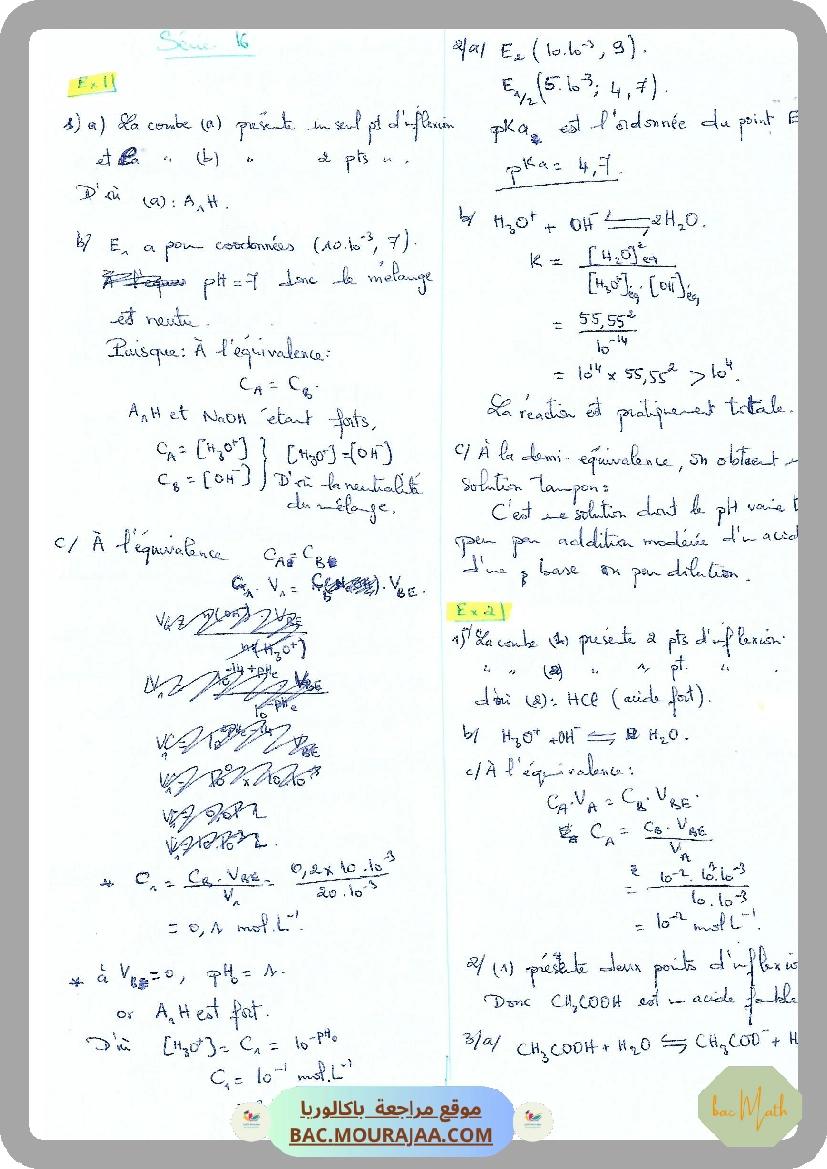 Série 16
Ex 1
1) a) La courbe (a) présente un seul pt d'inflexion
et la " (b) " 2 pts " .
D'où (a) : A₁H.
b/ E₁ a pour coordonnées (10.10⁻³, 7).
pH = 7 donc le mélange
est neutre.
Puisque : À l'équivalence :
C_A = C_B.
A₁H et NaOH étant forts,
C_A = [H₃O⁺] } [H₃O⁺] = [OH⁻]
C_B = [OH⁻] } D'où la neutralité
du mélange.
c/ À l'équivalence C_A = C_B
C_A . V₁ = C_B . V_BE.
* C₁ = C_B . V_BE / V₁ = 0,2 x 10 . 10⁻³ / 20 . 10⁻³
= 0,1 mol.L⁻¹
* à V_BE = 0, pH₀ = 1.
or A₁H est fort.
D'où [H₃O⁺] = C₁ = 10^-pH₀
C₁ = 10⁻¹ mol.L⁻¹
2/a/ E₂ (10.10⁻³, 9).
E₁/₂ (5.10⁻³; 4,7).
pKa₂ est l'ordonnée du point E
pKa = 4,7.
b/ H₃O⁺ + OH⁻ ⇌ 2H₂O.
K = [H₂O]²éq / [H₃O⁺]éq . [OH⁻]éq
= 55,55² / 10⁻¹⁴
= 10¹⁴ x 55,55² > 10⁴.
La réaction est pratiquement totale.
c/ À la demi-équivalence, on obtient
solution tampon :
C'est une solution dont le pH varie t
peu par addition modérée d'un acid
d'une base ou par dilution.
Ex 2
1) a/ La courbe (1) présente 2 pts d'inflexion.
" " (2) " 1 pt. "
d'où (2) : HCl (acide fort).
b/ H₃O⁺ + OH⁻ ⇌ 2 H₂O.
c/ À l'équivalence :
C_A . V_A = C_B . V_BE.
C_A = C_B . V_BE / V_A
= 10⁻² . 10 . 10⁻³ / 10 . 10⁻³
= 10⁻² mol L⁻¹.
2/ (1) présente deux points d'inflexio
Donc CH₃COOH est un acide faible
3/a/ CH₃COOH + H₂O ⇌ CH₃COO⁻ + H
موقع مراجعة باكالوريا
BAC.MOURAJAA.COM
bac Math